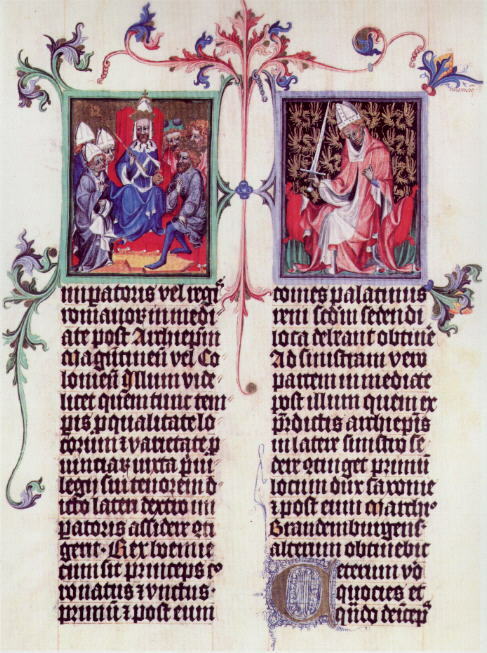 imꝑatoris vel regꝭ
romanoꝝ in medi
ate post Archiepm̄
Maguntineñ vel Co
lonieñ Illum vide
licet quem tunc tem
pis ꝓ qualitate lo
corum ⁊ varietate ꝓ
uinciaꝝ iuxta ṕui
legii sui tenorem di
cto lateri dextro im
patoris assidere cōti
gerit · Rex boemie
cum sit princeps co
ronatus ⁊ vnctus ·
primū ⁊ post eum
comes palatinus
reni scdm sedendi
loca debeant obtinē ·
Ad sinistram vero
partem in mediate
post illum quem ex
pr̄dictis archiepis
in latere sinistro se
dere cōtigerit primū
locum dux saxonie
⁊ post eum march̄
Brandemburgenſ
alterum obtinebit
Ceterum vo
quocies et
qn̄do deīcepꝭ